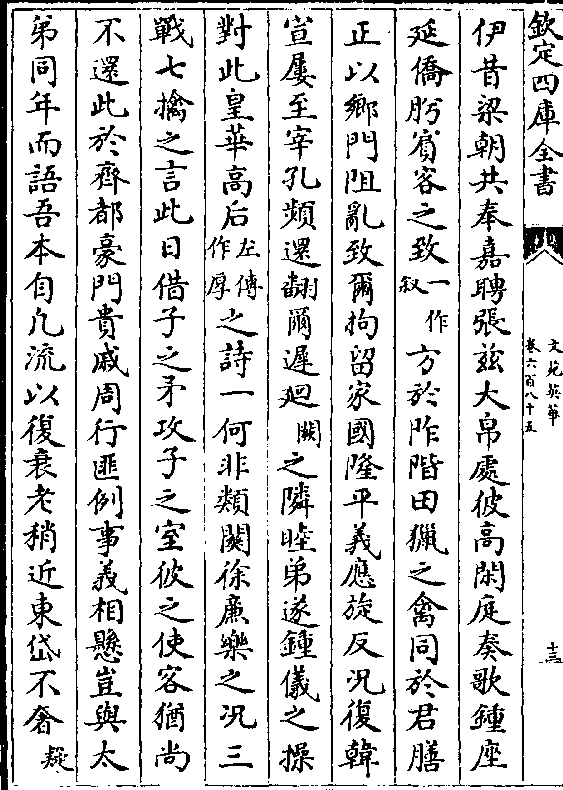 欽定四庫全書
文苑英華
卷六百八十五
十三
伊昔梁朝共奉嘉聘張兹大帛處彼高閎庭奏歌鍾座
延僑肸賓客之致一作叙方於阼階田獵之禽同於君膳
正以鄉門阻亂致爾拘留家國隆平義應旋反况復韓
宣屢至宰孔頻還翻爾遲廻闕之隣睦弟遂鍾儀之操
對此皇華高后左傳作厚之詩一何非類闕徐廉樂之况三
戰七擒之言此日借子之矛攻子之室彼之使客猶尚
不還此於齊都豪門貴戚周行匪例事義相懸豈與太
弟同年而語吾本自凡流以復衰老稍近東岱不奢疑